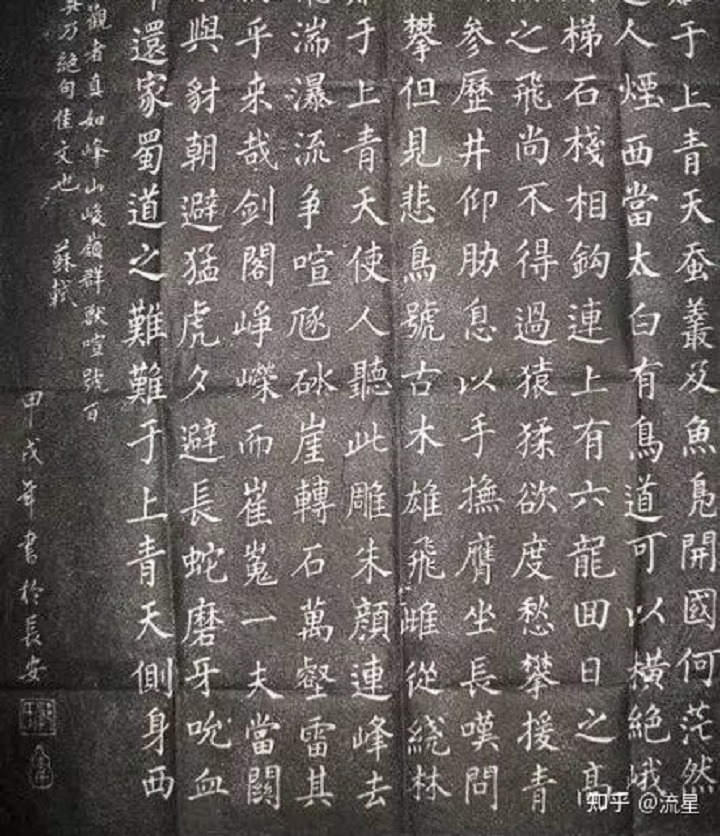 于上青天蚕叢及魚鳧開國何茫然
人煙西當太白有鳥道可以橫絕峨
梯石棧相鈎連上有六龍囬日之高
之飛尚不得過猿猱欲度愁攀援青
參歷井仰胁息以手撫膺坐長嘆問
攀但見悲鳥號古木雄飛雌從繞林
于上青天使人聽此雕朱顏連峰去
湍瀑流争喧豗砯崖轉石萬壑雷其
乎来哉劍閣崢嶸而崔嵬一夫當關
與豺朝避猛虎夕避長蛇磨牙吮血
還家蜀道之難難于上青天側身西
觀者真如峰山峻嶺群獸喧號百
万絕句佳文也 蘇軾
甲戌年書於長安
知乎 @流星